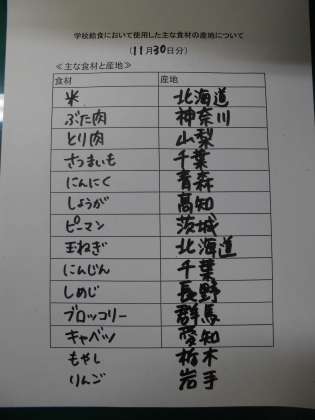 学校給食において使用した主な食材の産地について
(11月30日分)
≪主な食材と産地≫
食材 産地
米 北海道
ぶた肉 神奈川
とり肉 山梨
さつまいも 千葉
にんにく 青森
しょうが 高知
ピーマン 茨城
玉ねぎ 北海道
にんじん 千葉
しめじ 長野
ブロッコリー 群馬
キャベツ 愛知
もやし 栃木
りんご 岩手